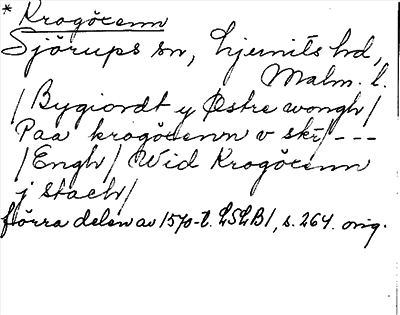 * Krogöcenn
Sjörups sn, Ljunits hd,
Malm. l.
/ Bygiordt y Østre wongh /
Paa krogöcenn v skr / - - -
/ Engh / Wid Krogöcenn
j stach /
förra delen av 1570-t. LSLB1, s. 264. orig.